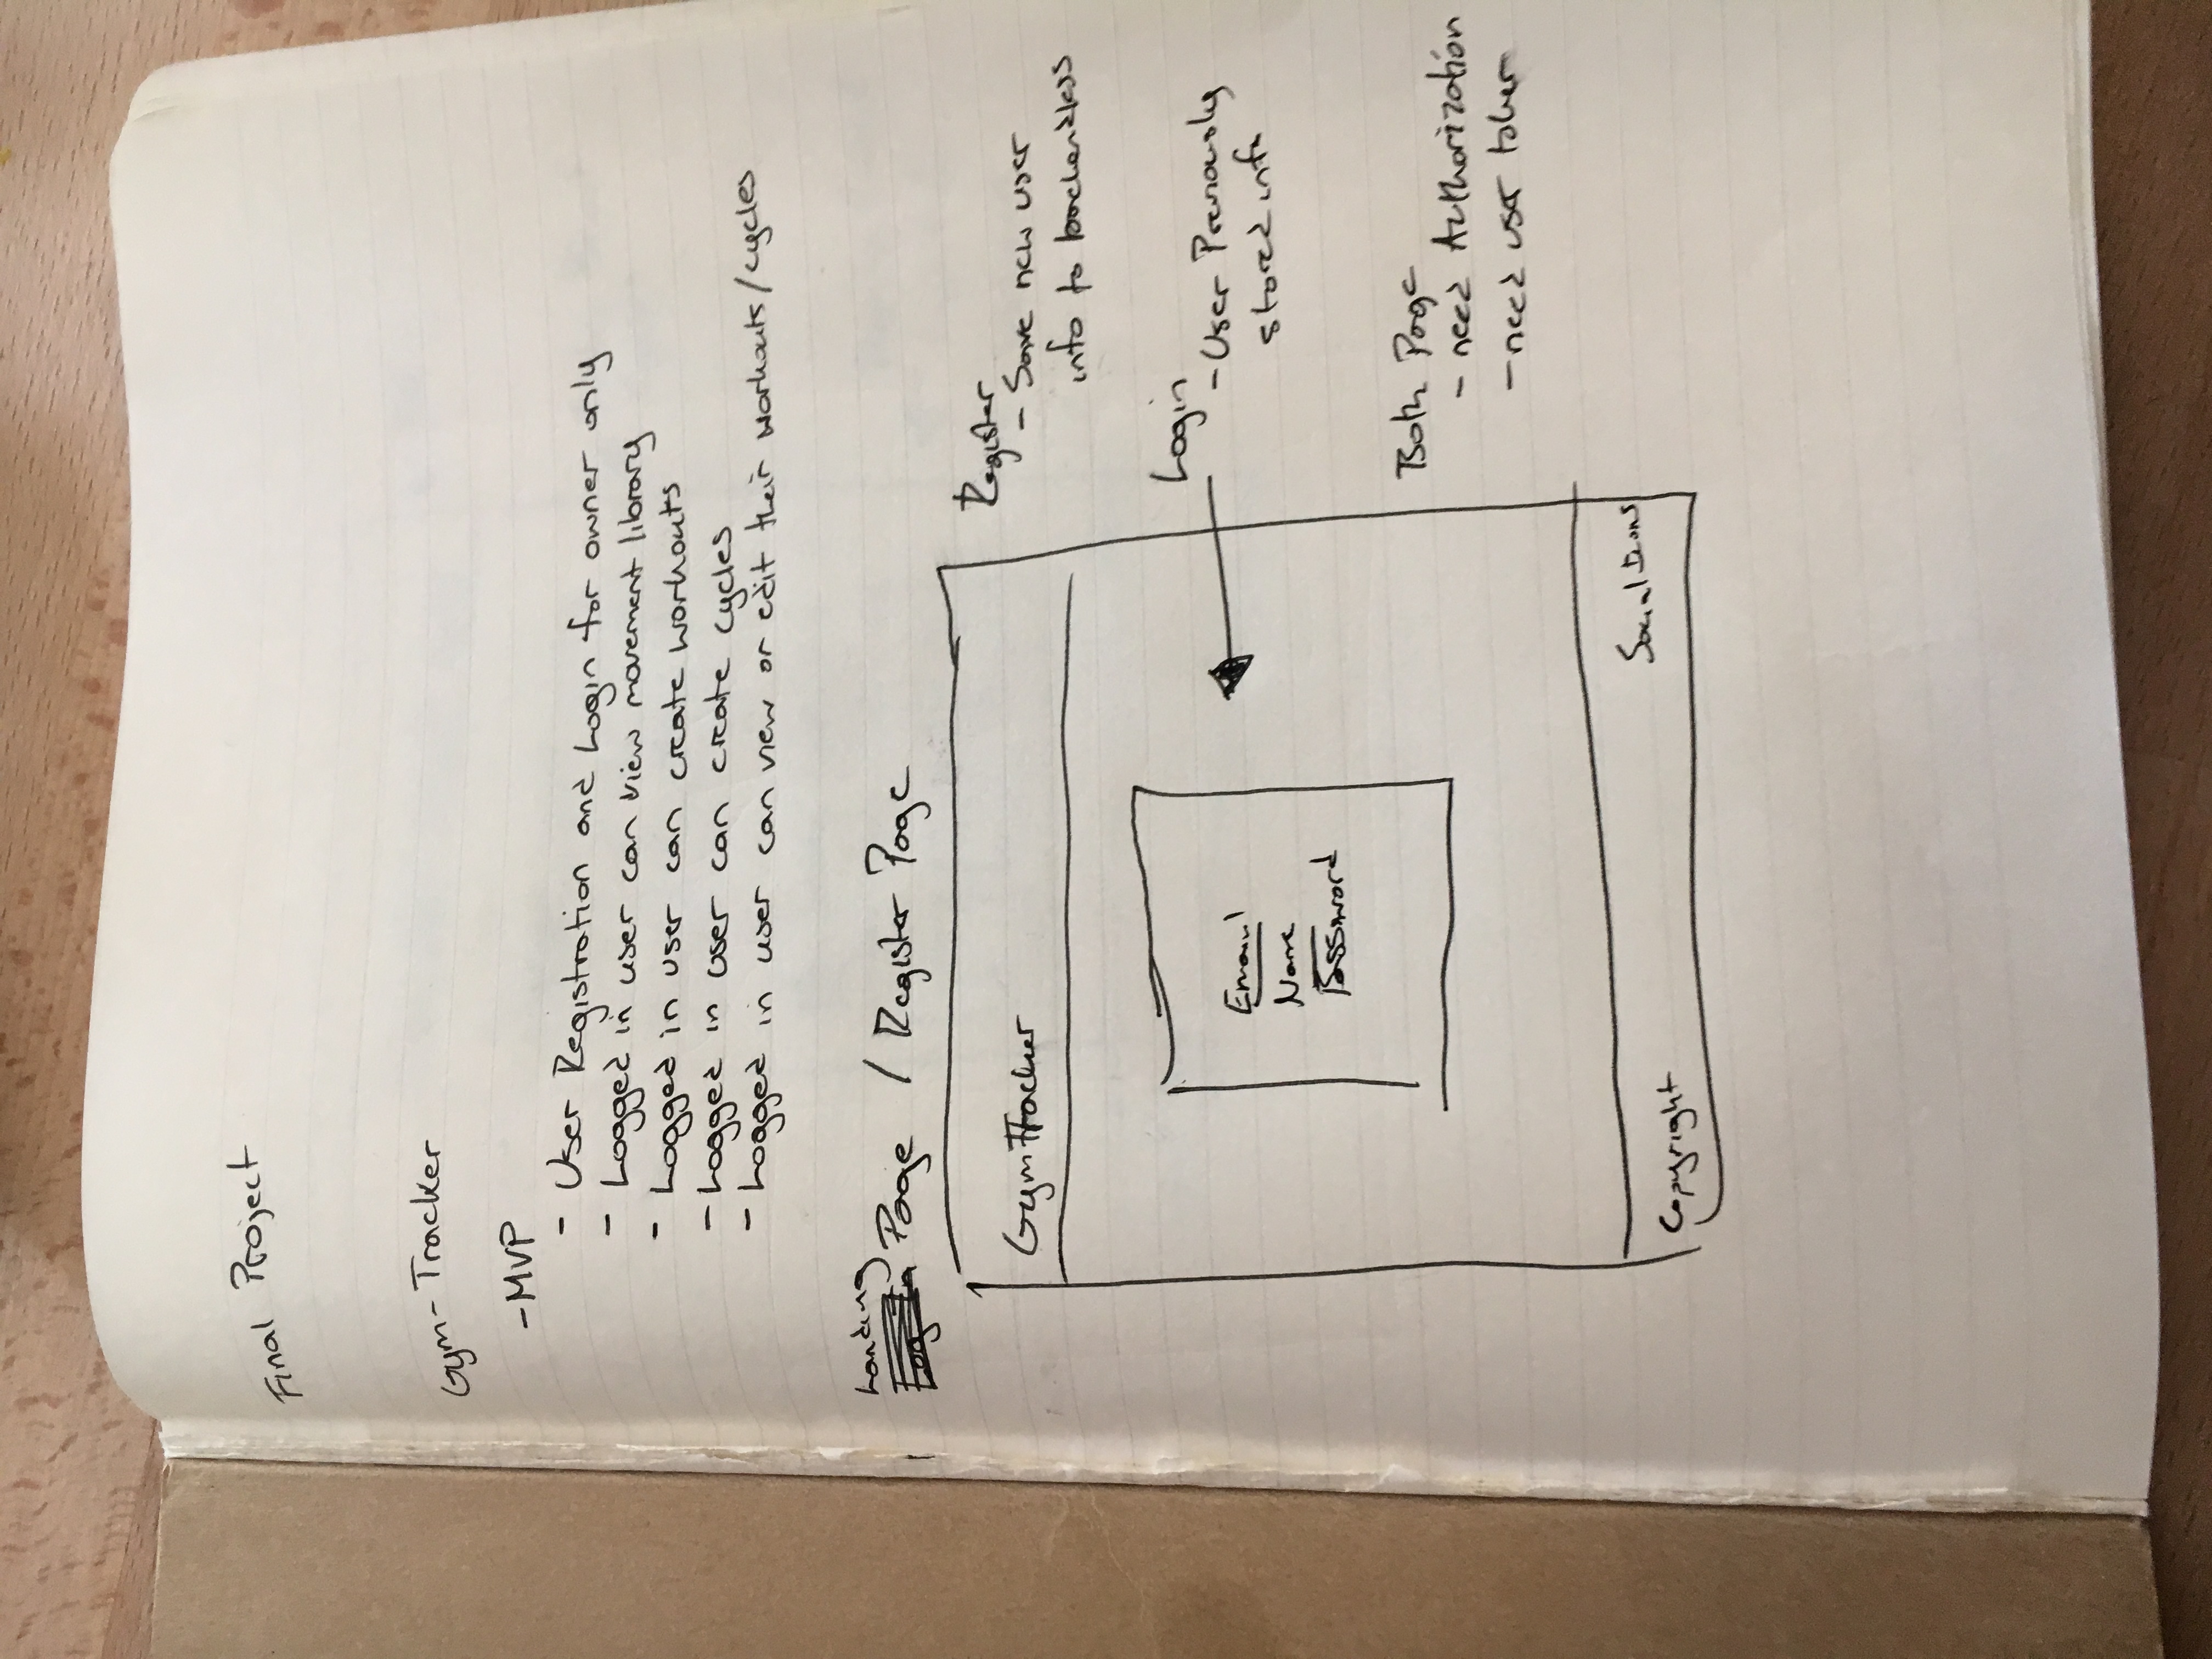 Final Project
Gym-Tracker
-MVP
- User Registration and Login for owner only
- Logged in user can view movement library
- Logged in user can create workouts
- Logged in user can create cycles
- Logged in user can view or edit their workouts/cycles
Landing
Log In Page / Register Page
GymTracker
Email
Name
Password
Copyright
Social Icons
Register
- Save new user
info to backendless
Login
- User Previously
stored info
Both Page
- need Authorization
- need user token